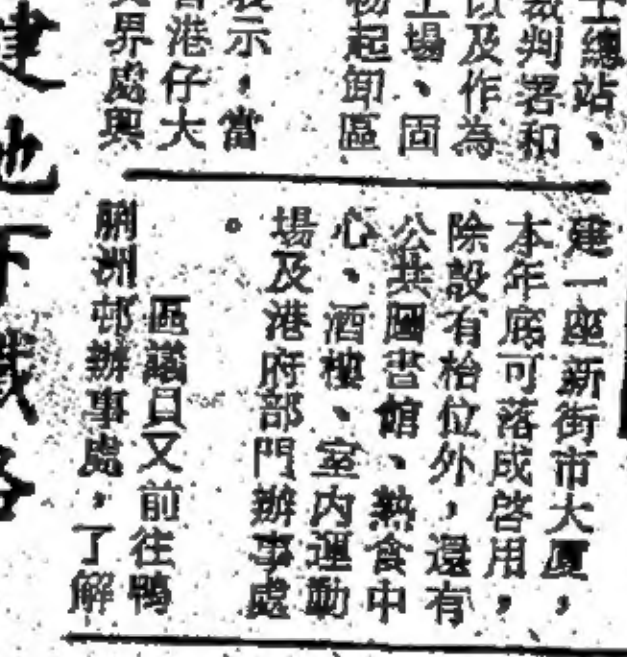 主總站、
裁判署和
以及作為
上場、固
物起卸區
表示，當
香港仔大
界處興
建一座新街市大厦，
本年底可落成啓用，
除設有枱位外，還有
公共圖書館、熱食中
心、酒樓、室內運動
場及港府部門辦事處
。
區議員又前往鴨
脷洲邨辦事處，了解
建地下鐵路